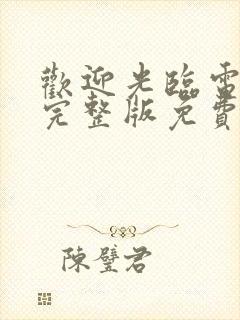 歡迎光臨電
完整版免費
陳璧君